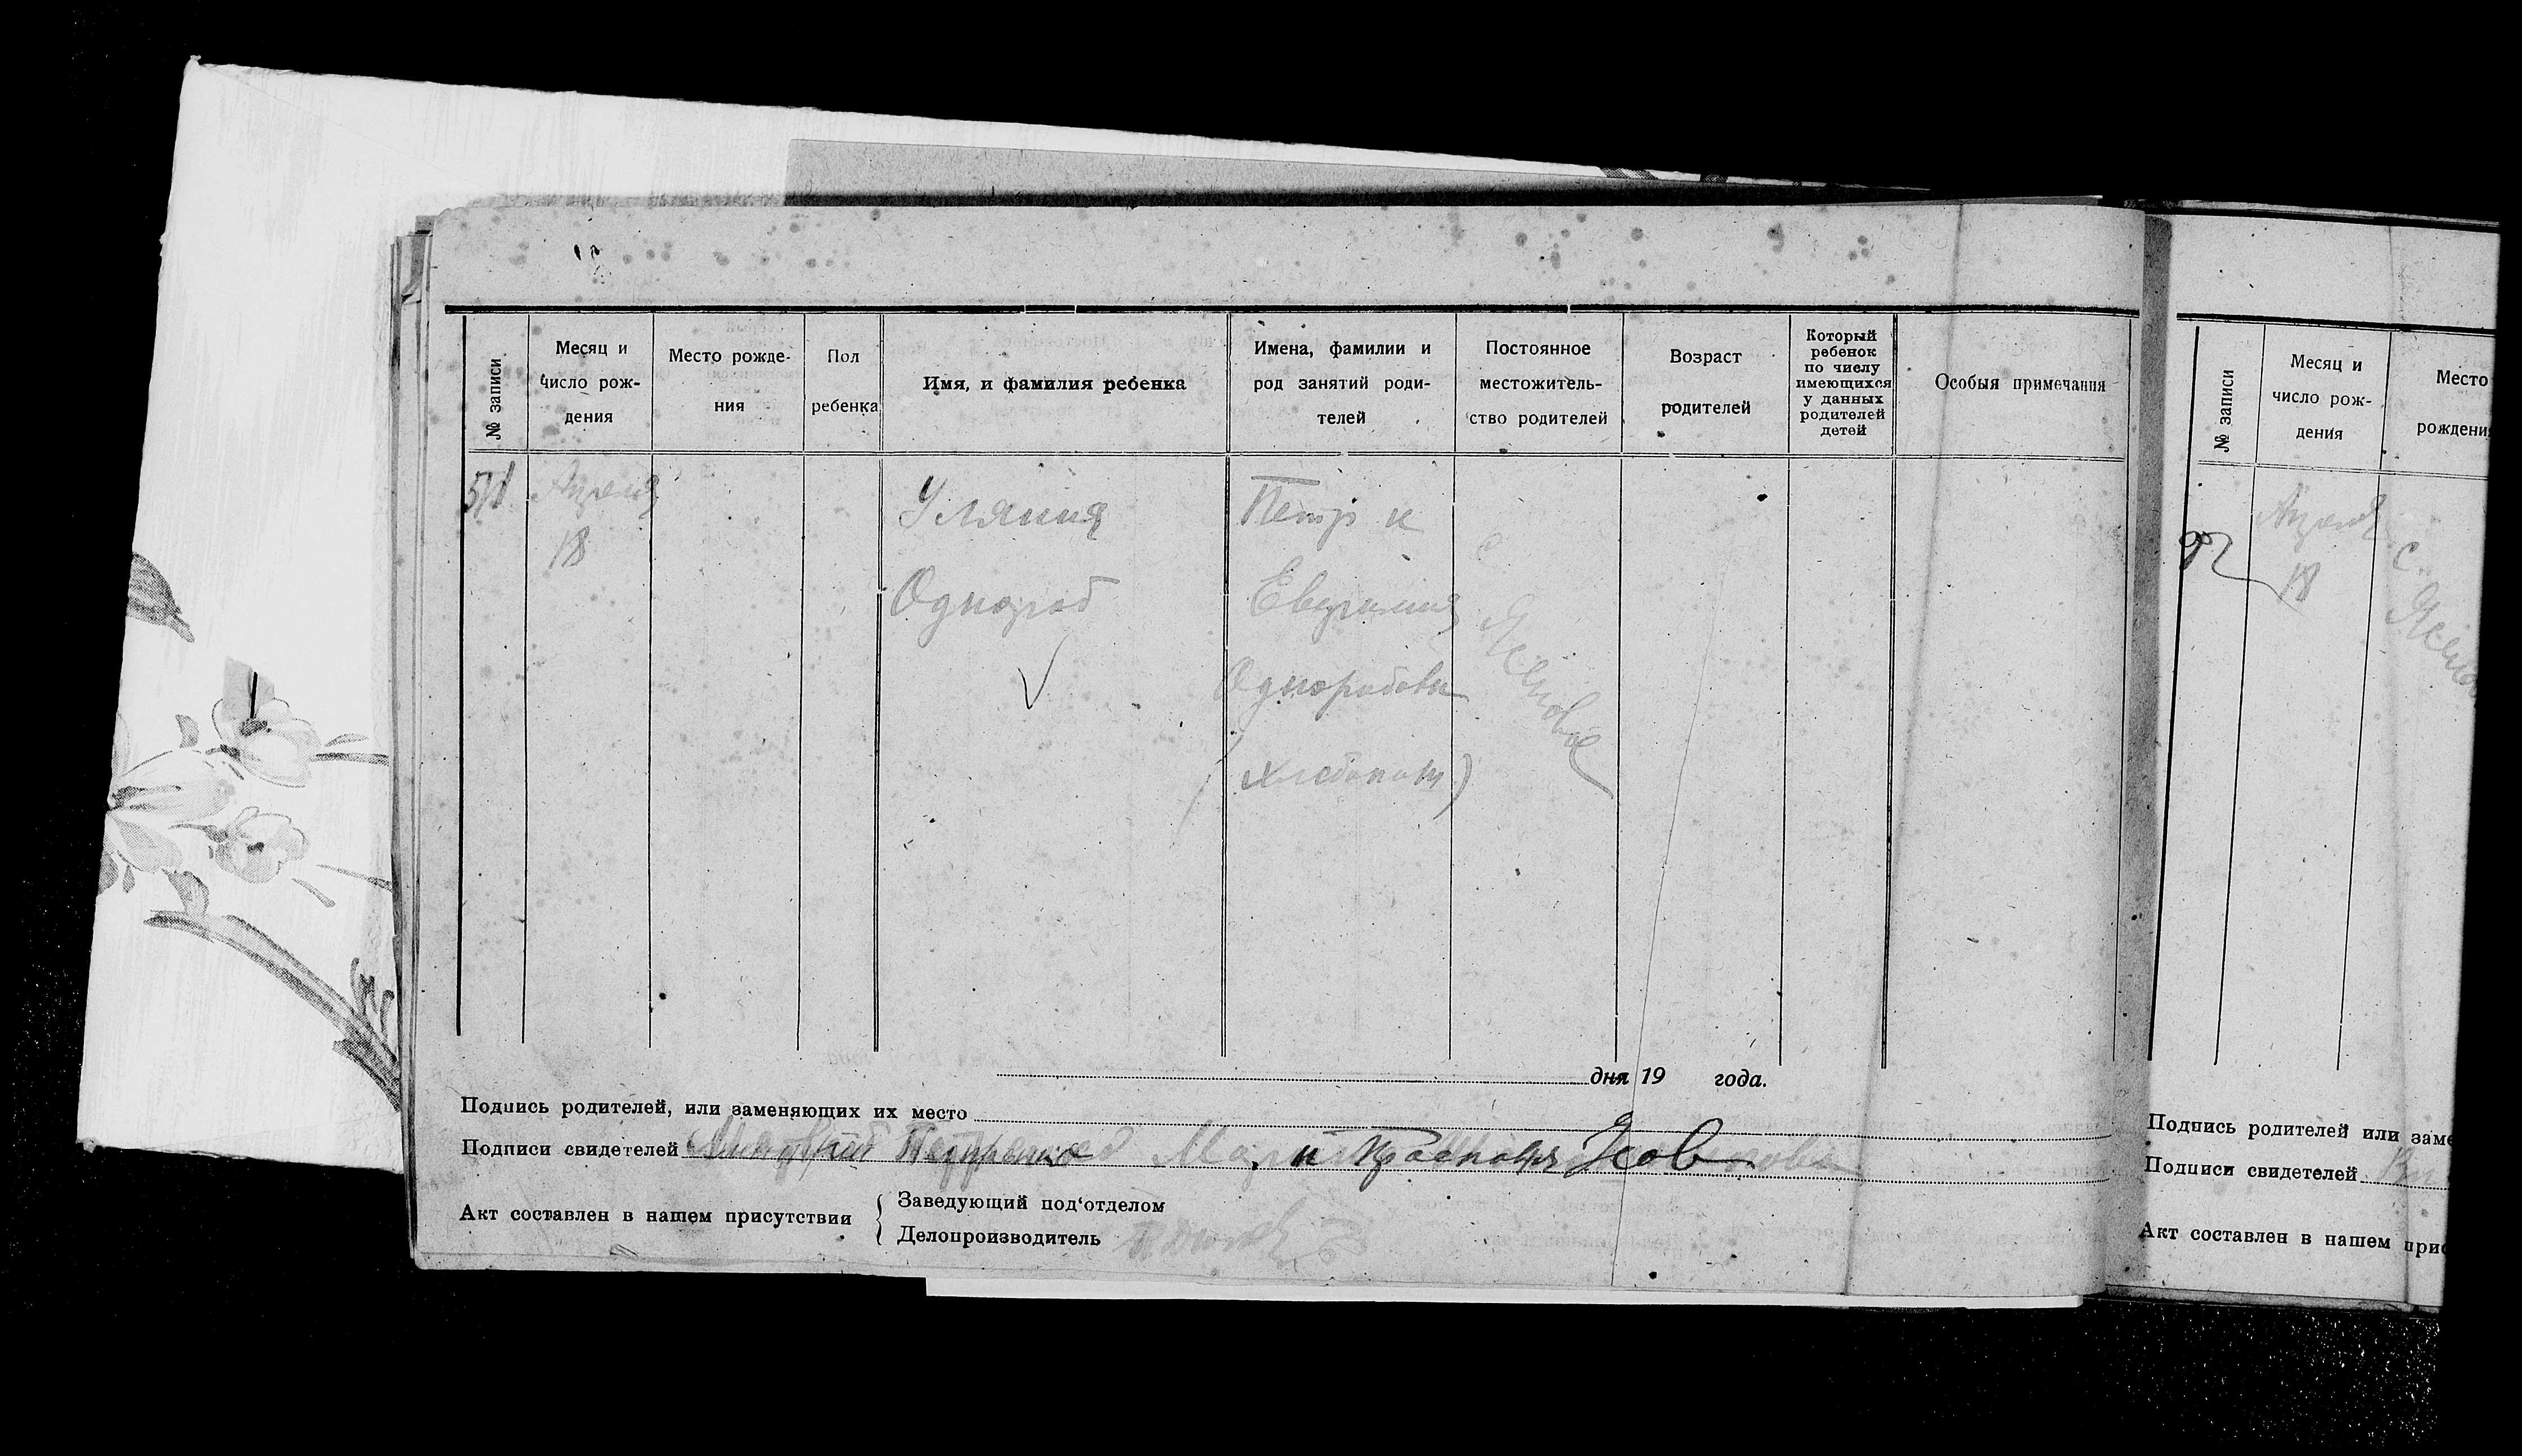 № записи
Месяц и
число рож-
дения
Место рожде-
ния
Пол
ребенка
Имя, и фамилия ребенка
Имена, фамилии и
род занятий роди-
телей
Постоянное
местожитель-
ство родителей
Возраст
родителей
Который
ребенок
по числу
имеющихся
у данных
родителей
детей
Особыя примечания
Апреля
18
Уляния
Однораб
Петр и
Однорабовы
с
Ясеновое
дня 19 года.
Подпись родителей, или заменяющих их место
Подписи свидетелей
и
Акт составлен в нашем присутствии
Заведующий под'отделом
Делопроизводитель
№ записи
Месяц и
число рож-
дения
Место
рождени
Апреля
18
с.
Подпись родителей или заме
Подписи свидетелей
Акт составлен в нашем при